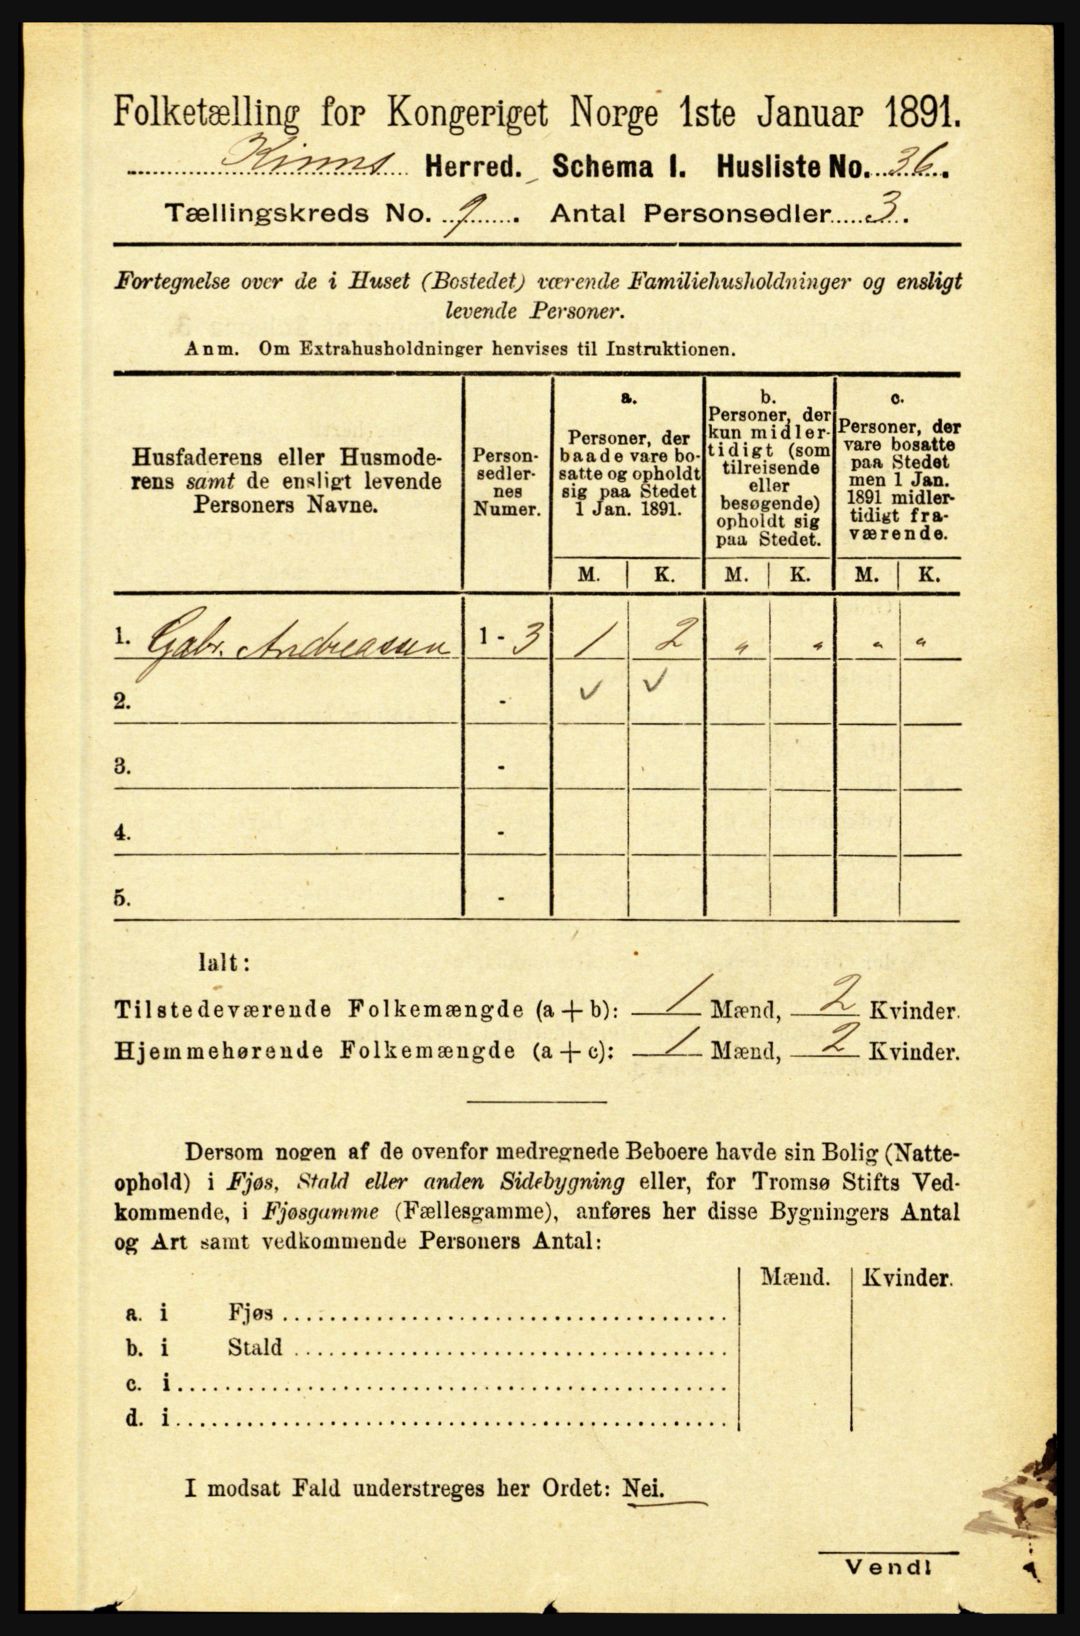 Folketælling for Kongeriget Norge 1ste Januar 1891.
Kinns Herred. Schema I. Husliste No. 36.
Tællingskreds No. 9. Antal Personsedler 3.
Fortegnelse over de i Huset (Bostedet) værende Familiehusholdninger og ensligt
levende Personer.
Anm. Om Extrahusholdninger henvises til Instruktionen.
Husfaderens eller Husmode-
rens samt de ensligt levende
Personers Navne.
Person-
sedler-
nes
Numer.
a.
Personer, der
baade vare bo-
satte og opholdt
sig paa Stedet
1 Jan. 1891.
b.
Personer, der
kun midler-
tidigt (som
tilreisende
eller
besøgende)
opholdt sig
paa Stedet.
c.
Personer, der
vare bosatte
paa Stedet
men 1 Jan.
1891 midler-
tidigt fra-
værende.
M. K. M. K. M. K.
1. Gabr. Andreassen 1 - 3 1 2 „ „ „ „
2. - ✓ ✓
3. -
4. -
5. -
Ialt:
Tilstedeværende Folkemængde (a + b): 1 Mænd, 2 Kvinder.
Hjemmehørende Folkemængde (a + c): 1 Mænd, 2 Kvinder.
Dersom nogen af de ovenfor medregnede Beboere havde sin Bolig (Natte-
ophold) i Fjøs, Stald eller anden Sidebygning eller, for Tromsø Stifts Ved-
kommende, i Fjøsgamme (Fællesgamme), anføres her disse Bygningers Antal
og Art samt vedkommende Personers Antal:
Mænd. Kvinder.
a. i Fjøs
b. i Stald
c. i
d. i
I modsat Fald understreges her Ordet: Nei.
Vend!